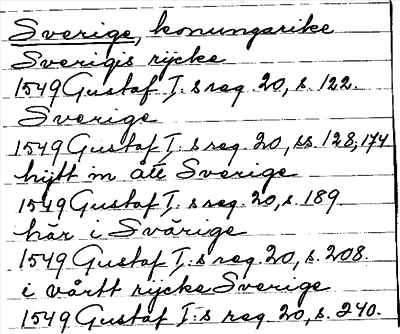 Sverige, konungarike
Sverigis rijcke
1549 Gustaf I:s reg. 20, s. 122.
Sverige
1549 Gustaf I:s reg. 20, ss. 128, 174
hijtt in ått Sverige
1549 Gustaf I:s reg. 20, s. 189
här i Svärige
1549 Gustaf I:s reg. 20, s. 208.
i vårtt rycke Sverige
1549 Gustaf I:s reg. 20, s. 240.